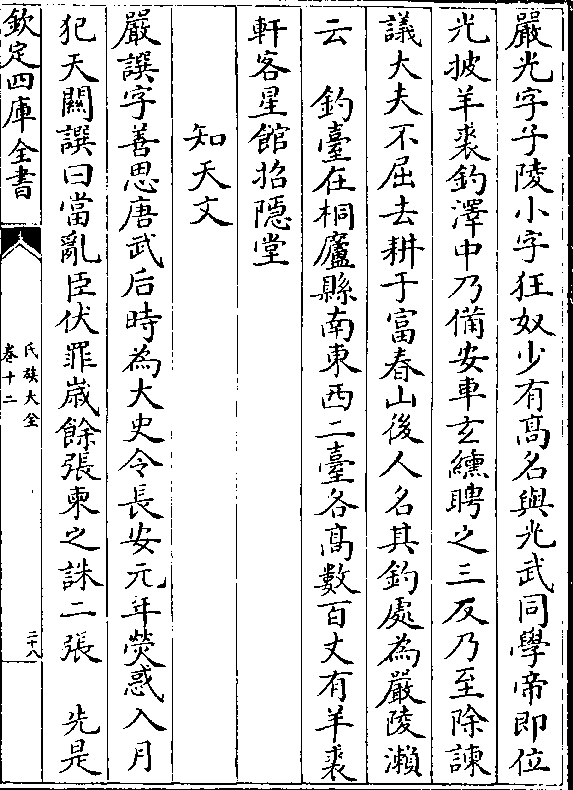 嚴光字子陵小字狂奴少有高名與光武同學帝即位
光披羊裘釣澤中乃備安車玄纁聘之三反乃至除諫
議大夫不屈去耕于富春山後人名其釣處為嚴陵瀨
云　釣臺在桐廬縣南東西二臺各高數百丈有羊裘
軒客星館招隱堂
知天文
嚴譔字善思唐武后時為大史令長安元年熒惑入月
犯天關譔曰當亂臣伏罪歲餘張柬之誅二張　先是
欽定四庫全書
氏族大全
卷十二
二十八